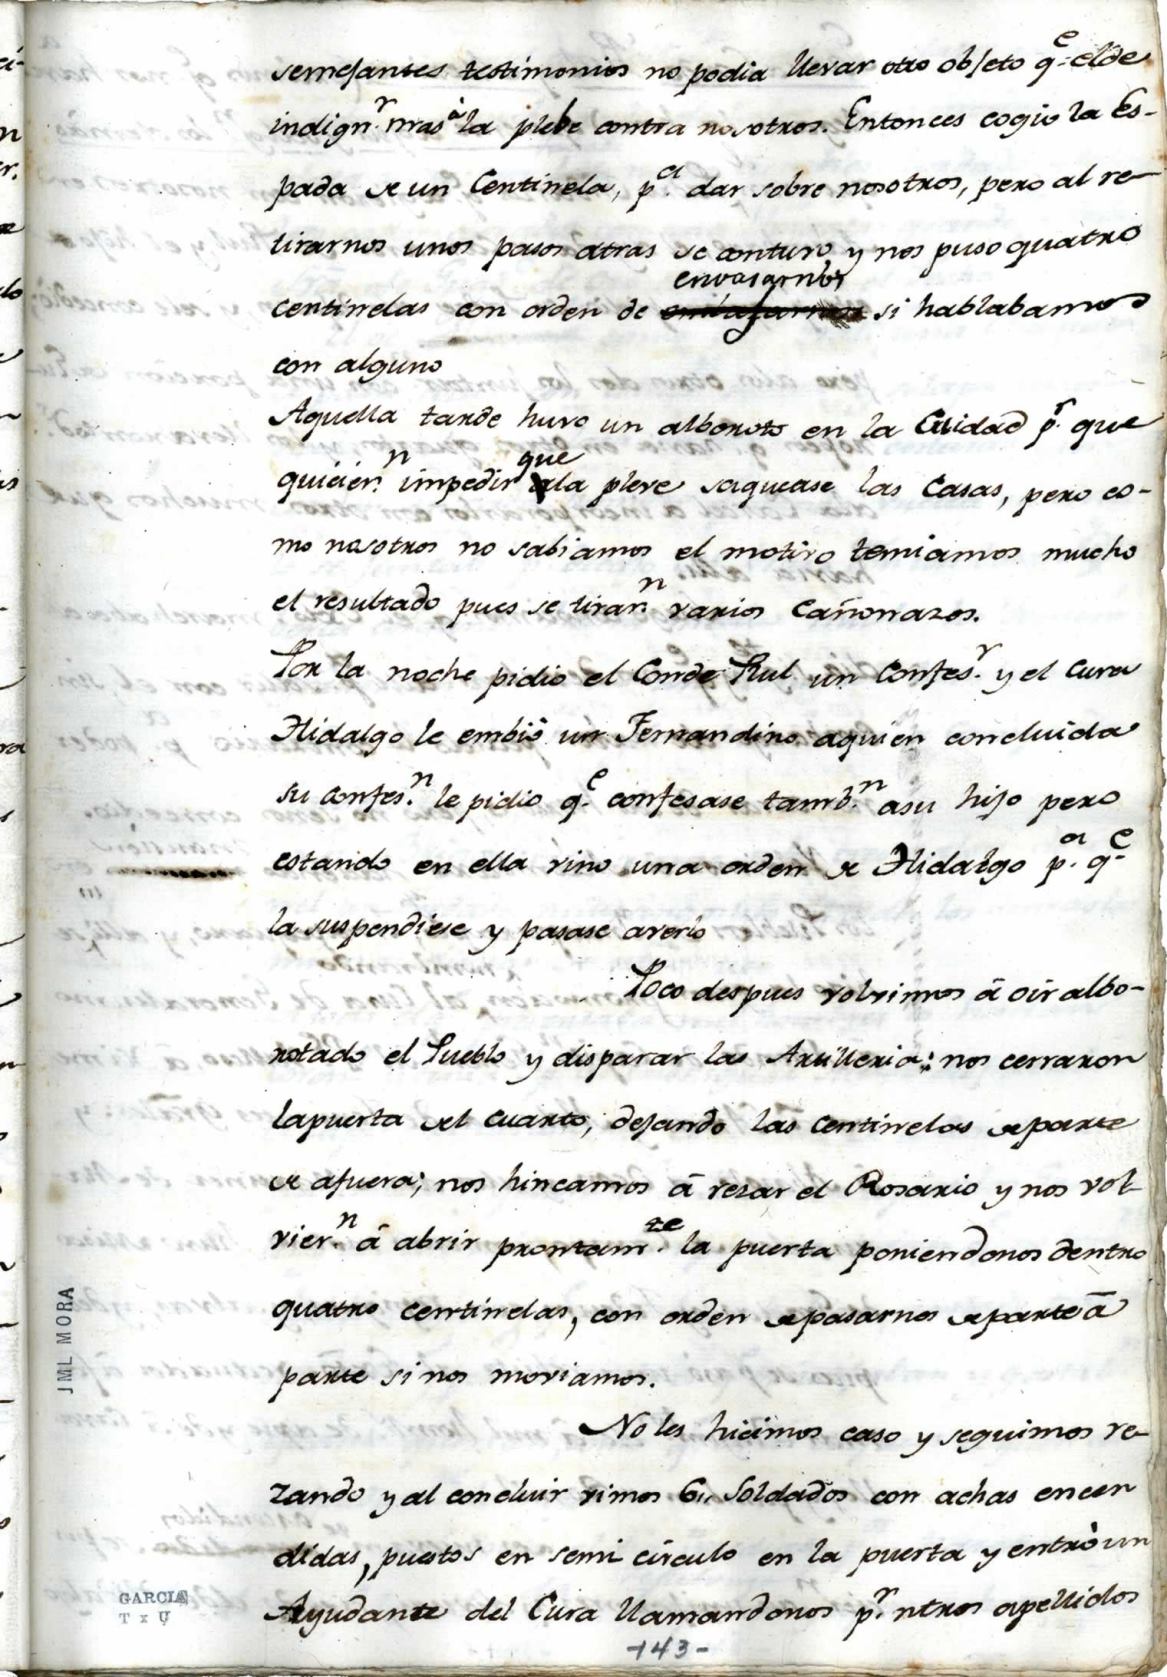 semejantes testimonios no podia llevar otro objeto q.e el de
indign.r mas à la plebe contra nosotros. Entonces cogio la Es-
pada de un Centinela, p.a dar sobre nosotros, pero al re-
tirarnos unos pasos atras se contuvo y nos puso quatro
envasarnos
centinelas con orden de si hablabamos
con alguno
Aquella tarde huvo un alboroto en la Ciudad p.r que
quicier.n impedir que la pleve saquease las Casas, pero co-
mo nosotros no sabiamos el motivo temiamos mucho
el resultado pues se tirar.n varios Cañonazos.
Por la noche pidio el Conde Rul un Confes.r y el Cura
Hidalgo le embiò un Fernandino aquien concluida
su confes.n le pidio q.e confesase tamb.n asu hijo pero
estando en ella vino una orden de Hidalgo p.a q.e
la suspendiese y pasase averlo
Poco despues volvimos â oir albo-
rotado el Pueblo y disparar las Artilleria: nos cerraron
lapuerta del cuarto, dejando las centinelas departe
de afuera; nos hincamos â resar el Rosario y nos vol-
vier.n â abrir prontam.te la puerta poniendonos dentro
quatro centinelas, con orden depasarnos departe â
parte si nos moviamos.
No les hicimos caso y seguimos re-
zando y al concluir vimos 6,, Soldados con achas encen
didas, puestos en semi circulo en la puerta y entrò un
Ayudante del Cura llamandonos p.r ntros apellidos
-143-
JML MORA
GARCIA
T x U